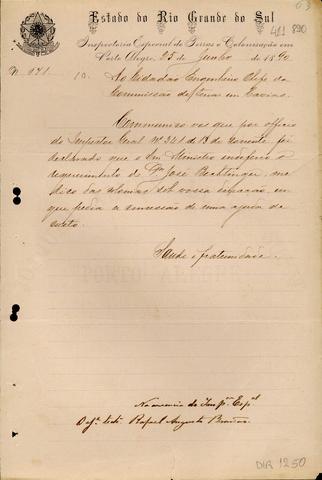 63
Estado do Rio Grande do Sul
411 890
Inspectoria Especial de Terras e Colonisação em
Porto Alegre, 25 de Junho de 1890
Nº 871
1ª
Ao Cidadão Engenheiro Chefe da
Commissão de terras em Caxias.
Communico vos que por officio
do Inspector Geral nº 241 de 13 do corrente foi
declarado que o Snr Ministro indeferio o
requerimento do Dr José Bechtinger, me
dico das colonias sob vossa direcção, em
que pedia a concessão de uma ajuda de
custo.
Saude e fraternidade.
Na ausencia do Insp.r Esp.al
O aj.e tech. Rafael Augusto Brandão
DIR 1250